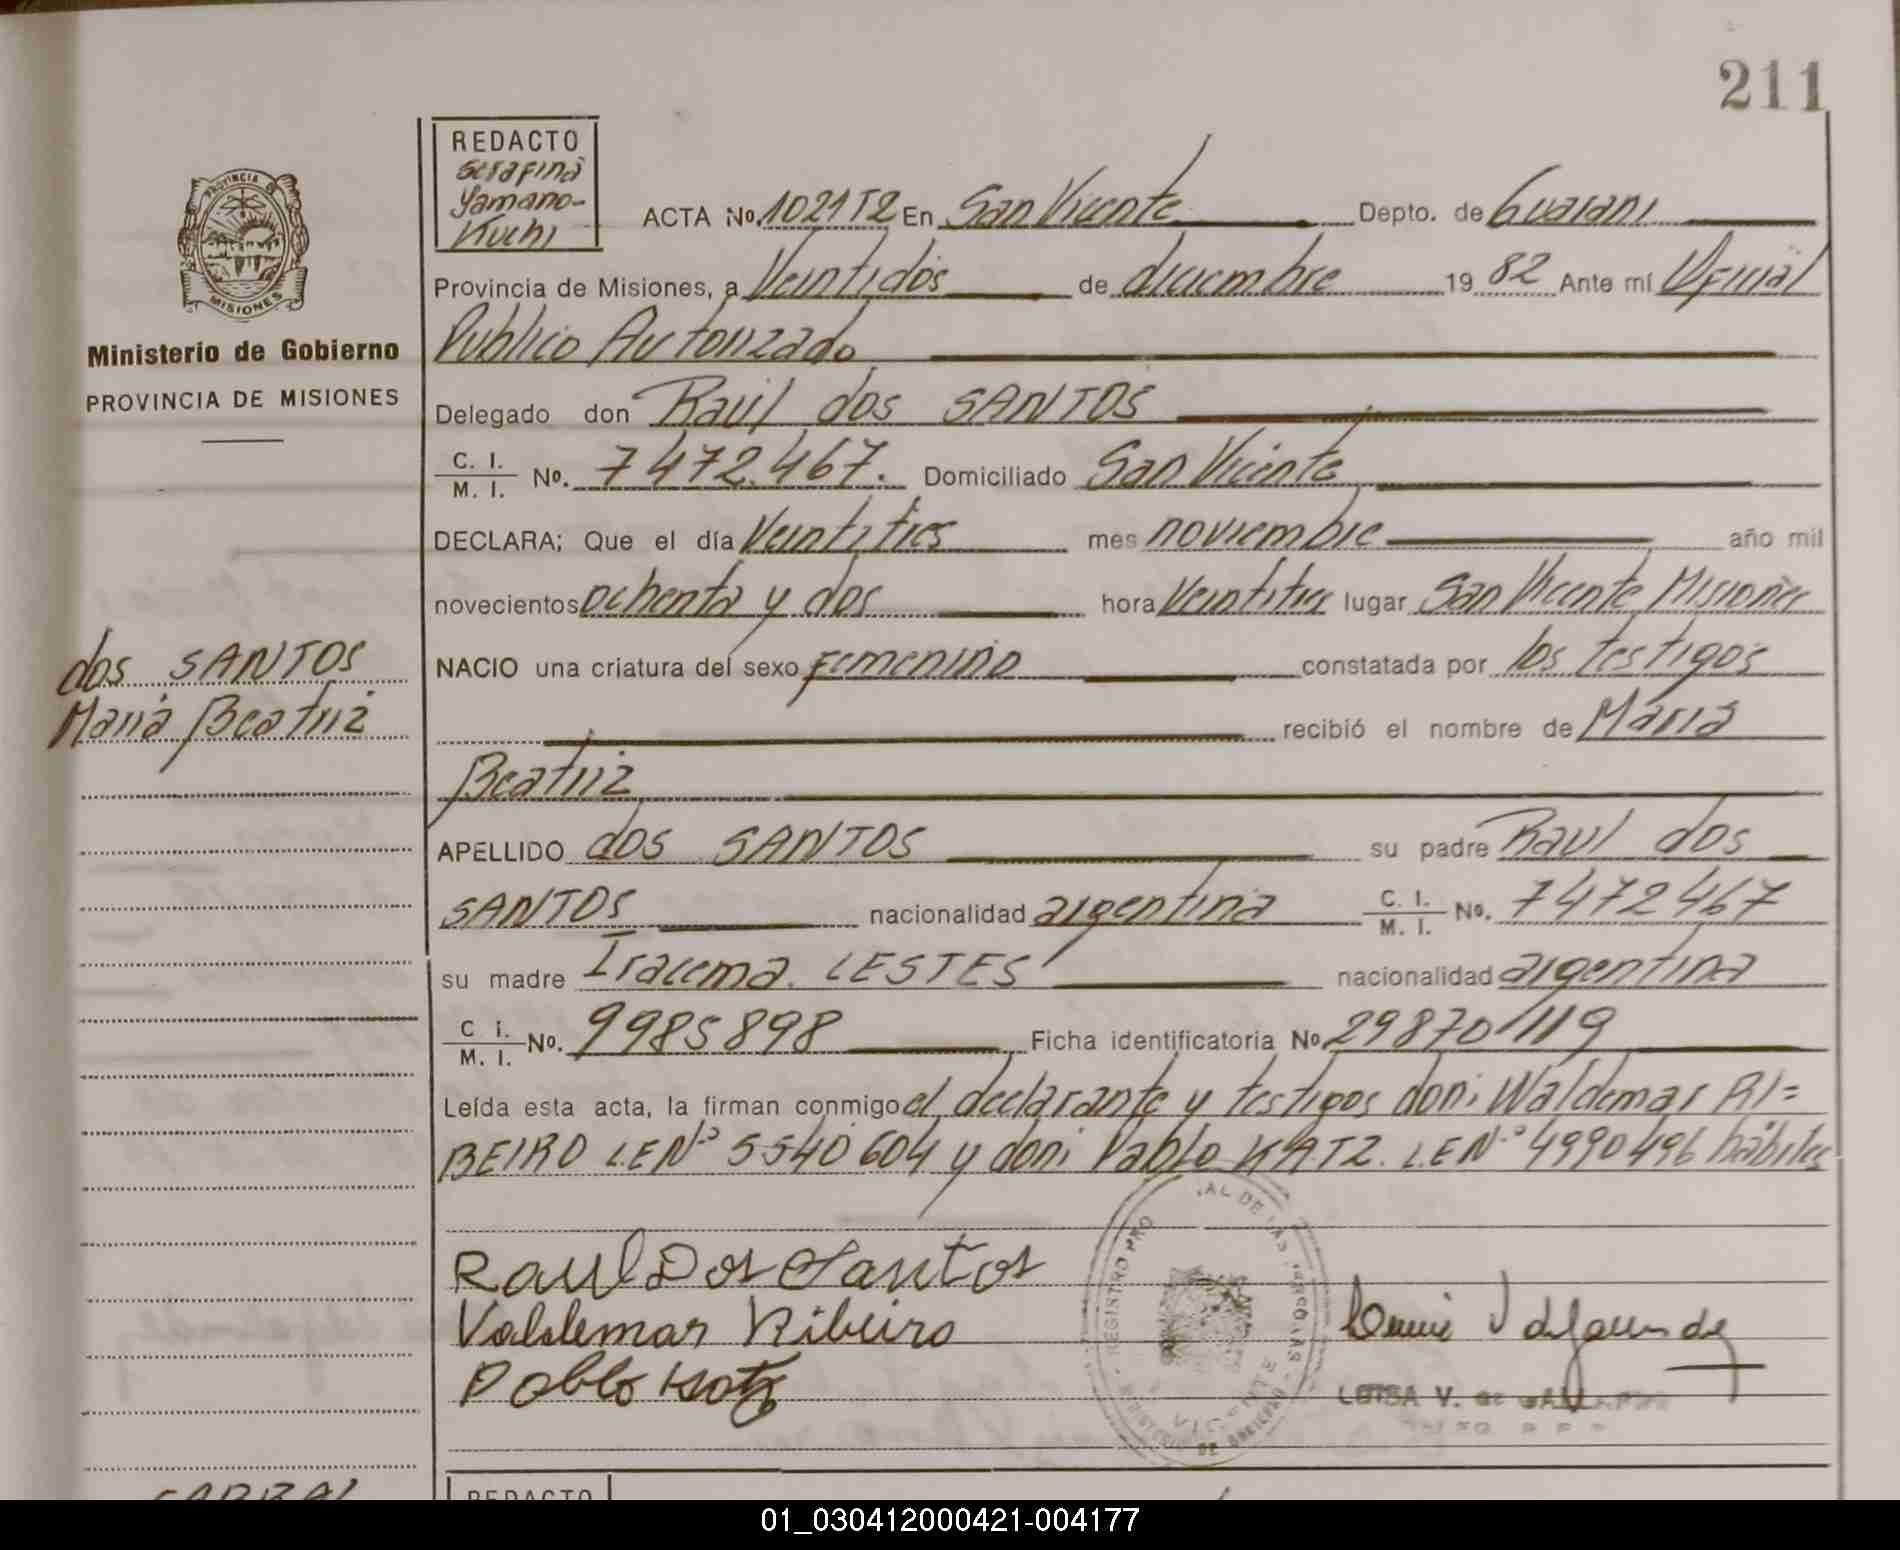 211
REDACTO
Serafina
Yamano-
Kuchi
PROVINCIA DE
MISIONES
Ministerio de Gobierno
PROVINCIA DE MISIONES
ACTA No. 1021T2 En San Vicente Depto. de Guarani
Provincia de Misiones, a Veintidos de diciembre 19 82 Ante mí Oficial
Publico Autorizado
Delegado don Raúl dos SANTOS
C. I. / M. I. No. 7472.467. Domiciliado San Vicente
DECLARA; Que el día Veintitres mes noviembre año mil
novecientos ochenta y dos hora Veintitres lugar San Vicente Misiones
NACIO una criatura del sexo Femenino constatada por los testigos
recibió el nombre de María
Beatriz
dos SANTOS
María Beatriz
APELLIDO dos SANTOS su padre Raul dos
SANTOS nacionalidad argentina C. I. / M. I. No. 7472467
su madre Iracema LESTES nacionalidad argentina
C I. / M. I. No. 9985898 Ficha identificatoria No 29870119
Leída esta acta, la firman conmigo el declarante y testigos don: Waldemar RI=
BEIRO L.E Nº 5540604 y don: Pablo KATZ. L.E Nº 4990496 hábiles
Raul Dos Santos
Valdemar Ribeiro
Pablo Katz
LUISA V. de
REGISTRO PRO AL DE LAS PERSONAS
VICENTE
MINISTERIO DE GOBIERNO
REDACTO
01_030412000421-004177